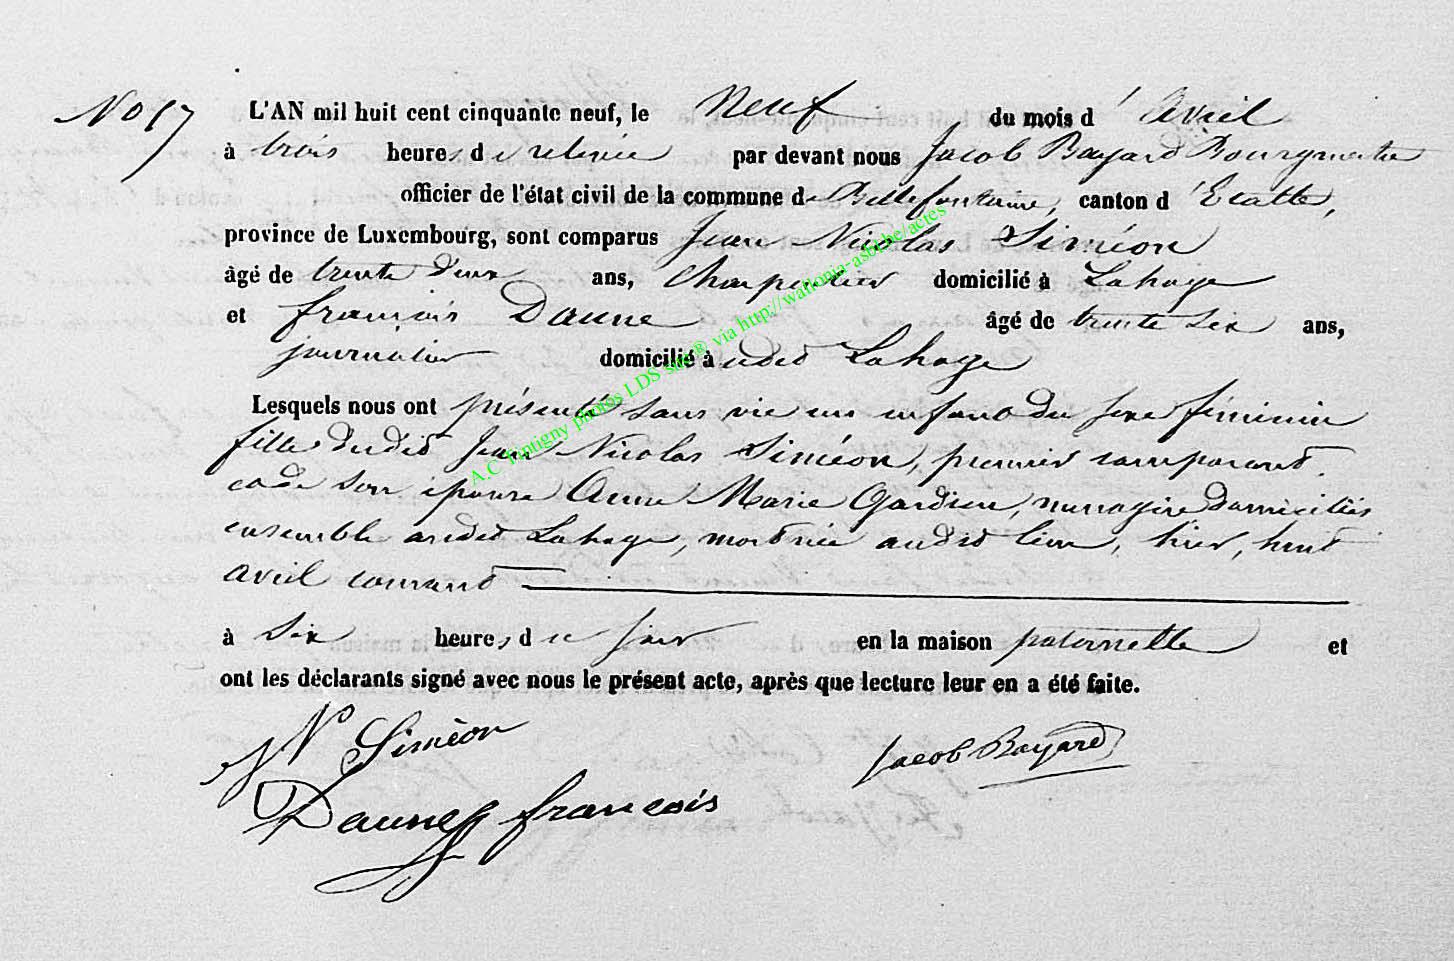 No 17 L'AN mil huit cent cinquante neuf, le Neuf du mois d'Avril
à trois heures de relevée par devant nous Jacob Bayard Bourgmestre
officier de l'état civil de la commune de Bellefontaine, canton d'Etalle,
province de Luxembourg, sont comparus Jean Nicolas Siméon
âgé de trente deux ans, Charpentier domicilié à Lahage
et françois Daune âgé de trente six ans,
journalier domicilié à udit Lahage
Lesquels nous ont présenté sans vie un enfant du sexe féminin
fille dudit Jean Nicolas Siméon, premier comparant
et de son épouse Anne Marie Gardien, menagère domiciliés
ensemble audit Lahage, mort née audit lieu, hier, huit
avril courant
à six heures du soir en la maison paternelle et
ont les déclarants signé avec nous le présent acte, après que lecture leur en a été faite.
N Siméon
Jacob Bayard
Daune francois
A.C Tintigny photos LDS sur® via http://wallonia-asbl.be/actes